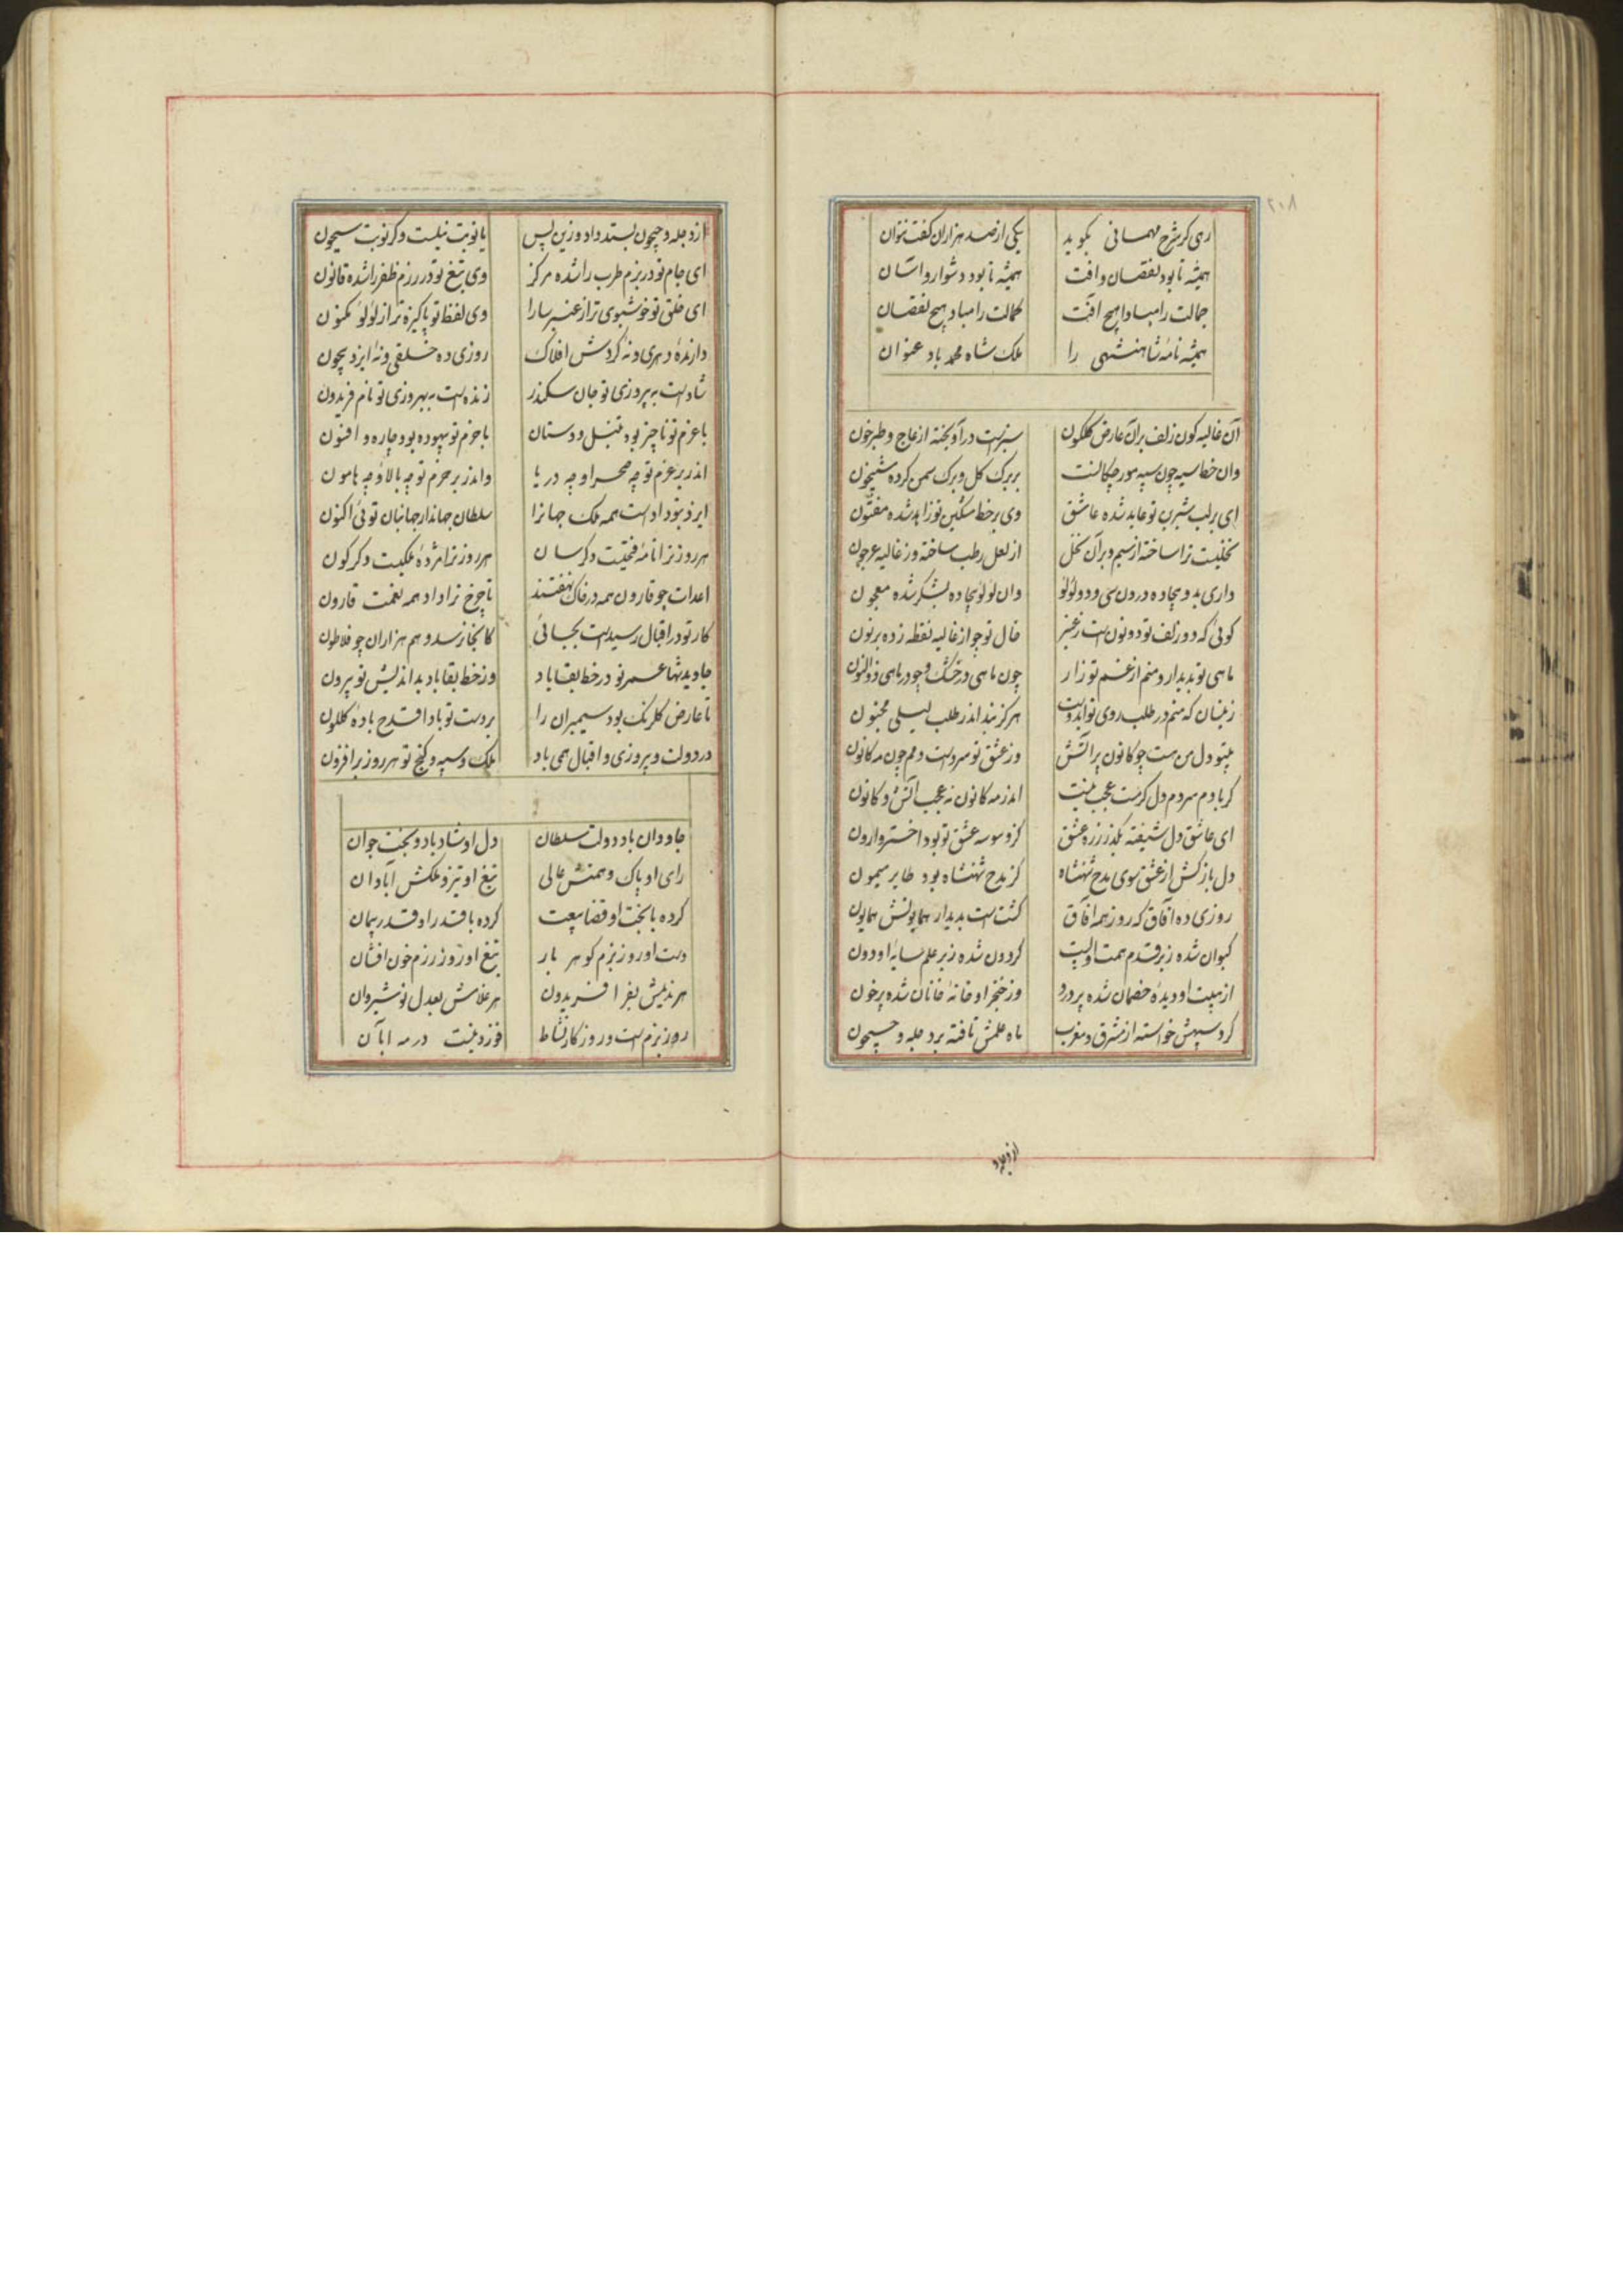 ۲۰۸
رهی کر شرح مهمانی بکوید یکی از صد هزاران کفت نتوان
همیشه تا بود نقصان و آفت همیشه تا بود دشوار و آسان
جمالت را مبادا هیچ آفت کمالت را مباد هیچ نقصان
همیشه نامه شاهنشهی را ملک شاه محمد باد عنوان
آن غالیه کون زلف بر آن عارض کلکون شبرنست در آویخته از عاج و طبرخون
وان خط سیه چون سپه مورچکانست بر برک کل و برک سمن کرده شبیخون
ای بر لب شیرین تو عابد شده عاشق وی بر خط مشکین تو زاهد شده مفتون
نخلیست ترا ساخته از سیم و بر آن نخل از لعل رطب ساخته وز غالیه عرجون
داری بدو بیجاده درون سی و دو لؤلؤ وان لؤلؤ بیجاده بشکر شده معجون
کوئی که دو زلف تو دو نونست ز عنبر خال تو چو از غالیه نقطه زده بر نون
ماهی تو بدیدار و منم از غم تو زار چون ماهی در خشک و چو در ماهی ذوالنون
زینسان که منم در طلب روی تو ایدوست هرکز نبد اندر طلب لیلی مجنون
بیتو دل من هست چو کانون پر آتش وز عشق تو سردست دمم چون مه کانون
کر باد دم سردم دل کرمست عجب نیست اندر مه کانون نه عجب آتش و کانون
ای عاشق دل شیفته بکذر ز ره عشق کز وسوسه عشق تو بود اختر وارون
دل بازکش از عشق سوی مدح شهنشاه کز مدح شهنشاه بود طایر میمون
روزی ده آفاق که روز همه آفاق کشتست بدیدار همایونش همایون
کیوان شده زیر قدم همت او پست کردون شده زیر علم سایه او دون
از هیبت او دیده خصمان شده پر درد وز خنجر او خانه خانان شده پر خون
کرد سپهش خواسته از مشرق و مغرب ماه علمش تافته بر دجله و جیحون
از دجله
از دجله و جیحون بستد داد و زین پس یا نوبت نیلست و کر نوبت سیحون
ای جام تو در بزم طرب را شده مرکز وی تیغ تو در رزم ظفر را شده قانون
ای خلق تو خوشبوی تر از عنبر سارا وی لفظ تو پاکیزه تر از لؤلؤ مکنون
دارنده دهری و نه گردش افلاک روزی ده خلقی و نه ایزد بیچون
شادست به پیروزی تو جان سکندر زنده است به بهروزی تو نام فریدون
با عزم تو ناچیز بود تنبل و دستان با حزم تو بیهوده بود چاره و افسون
اندر بر عزم تو چه صحرا و چه دریا واندر بر حزم تو چه بالا و چه هامون
ایزد بتو دادست همه ملک جهانرا سلطان جهاندار جهانبان توئی اکنون
هر روز ترا نامه فتحیست دکرسان هر روز ترا مژده ملکیست دکرکون
اعدات چو قارون همه در خاک نهفتند تا چرخ ترا داد همه نعمت قارون
کار تو در اقبال رسیدست بجائی کانجا نرسد وهم هزاران چو فلاطون
جاوید شها عمر تو در خط بقا باد وز خط بقا باد بد اندیش تو بیرون
تا عارض کلرنک بود سیمبران را بر دست تو بادا قدح باده کلکون
در دولت و پیروزی و اقبال همی باد ملک و سپه و کنج تو هر روز بر افزون
جاودان باد دولت سلطان دل او شاد باد و بخت جوان
رای او پاک و همتش عالی تیغ او تیز و ملکش آبادان
کرده با بخت او قضا بیعت کرده با قدر او قدر پیمان
دست او روز بزم کوهر بار تیغ او روز رزم خون افشان
هر ندیمش بفر افریدون هر غلامش بعدل نوشیروان
روز بزم است و روز کار نشاط در مه آبان